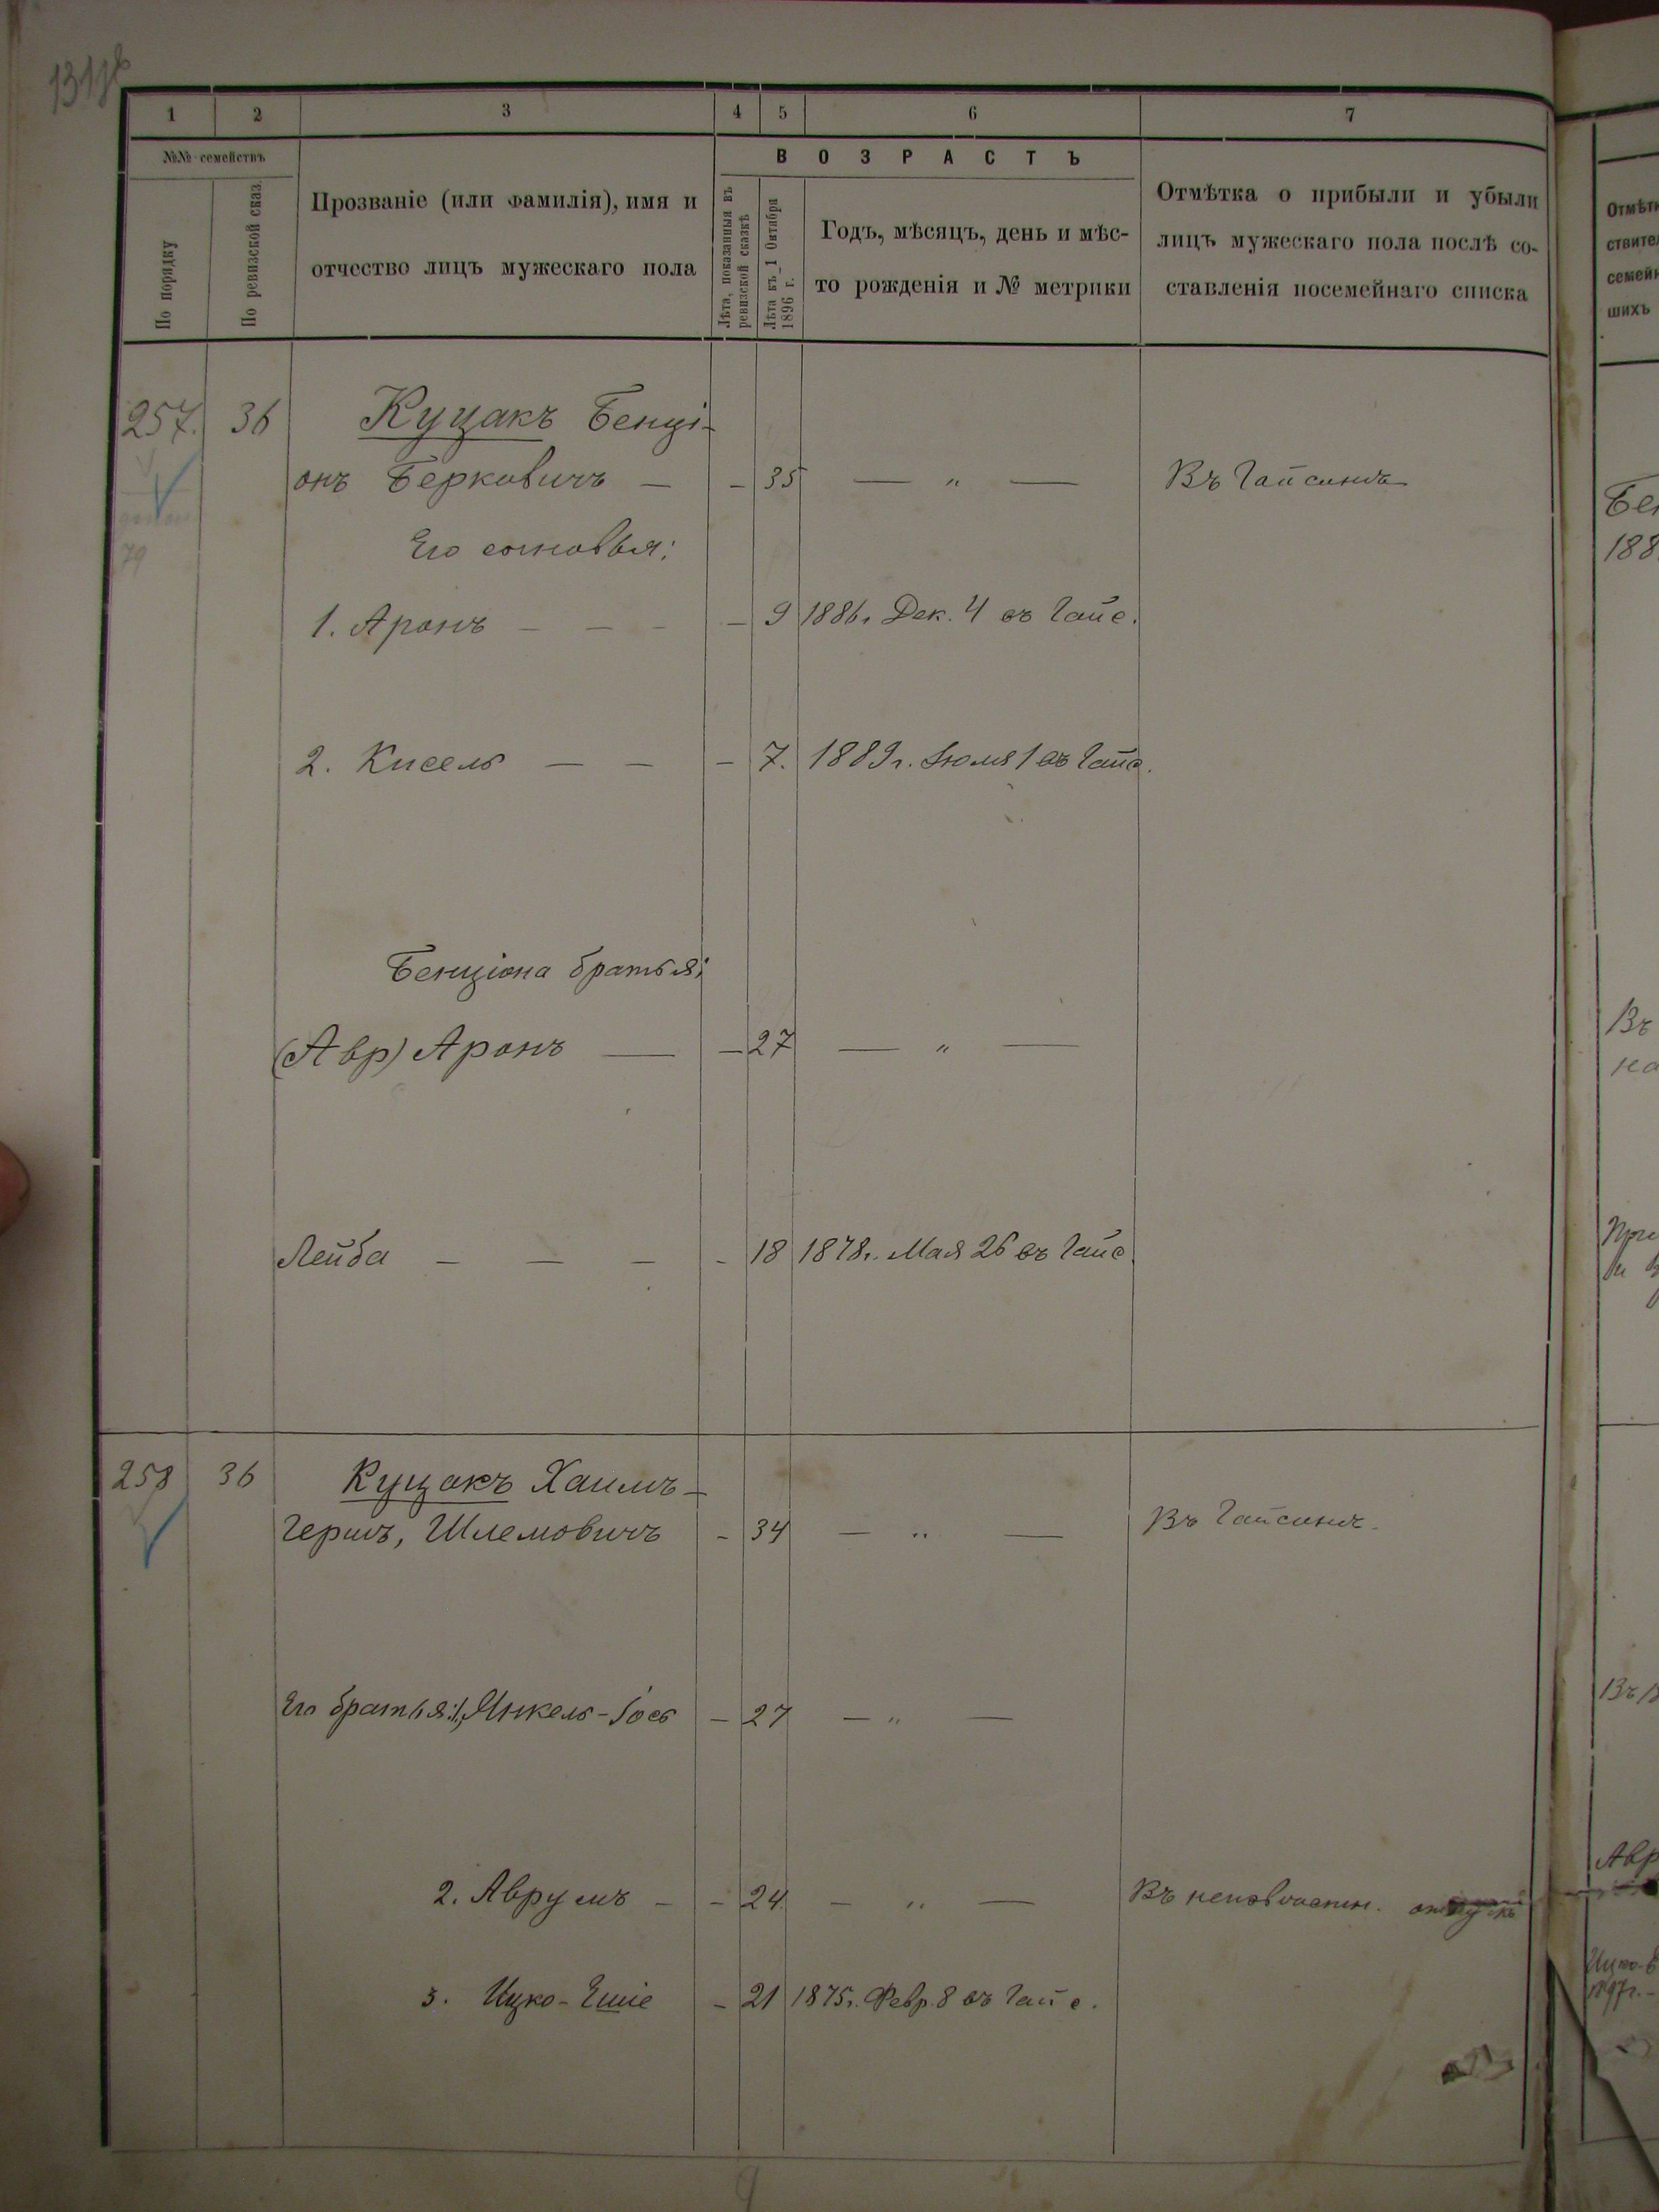 1 2 3 4 5 6 7
№№ семействъ
По порядку
По ревизской сказ.
Прозваніе (или фамилія), имя и
отчество лицъ мужескаго пола
ВОЗРАСТЪ
Лѣта, показанныя въ
ревизской сказкѣ
Лѣта къ 1 Октября
1896 г.
Годъ, мѣсяцъ, день и мѣс-
то рожденія и № метрики
Отмѣтка о прибыли и убыли
лицъ мужескаго пола послѣ со-
ставленія посемейнаго списка
257. 36 Куцакъ Бенці-
онъ Берковичъ — - 35 — „ — Въ Гайсинѣ
Его сыновья:
79
1. Аронъ - - - - 9 1886г. Дек. 4 въ Гайс.
2. Кисель — — - 7. 1889г. Іюля 1 въ Гайс.
Бенціона братья:
(Авр) Аронъ — - 27 — „ —
Лейба — — — - 18 1878г. Мая 26 въ Гайс.
258 36 Куцакъ Хаимъ-
Гершъ, Шлемовичъ - 34 — „ — Въ Гайсинѣ.
Его братья: 1, Янкель-Іось - 27 — „ —
2. Аврумъ - - 24 — „ — Въ неизвѣстн.
3. Ицко-Ешіе - 21 1875г. Февр. 8 въ Гайс.
Отмѣт
ствите
семей
шихъ
Бе
188
Въ
на
При
Въ
Авр
Ицко-
1897г.-